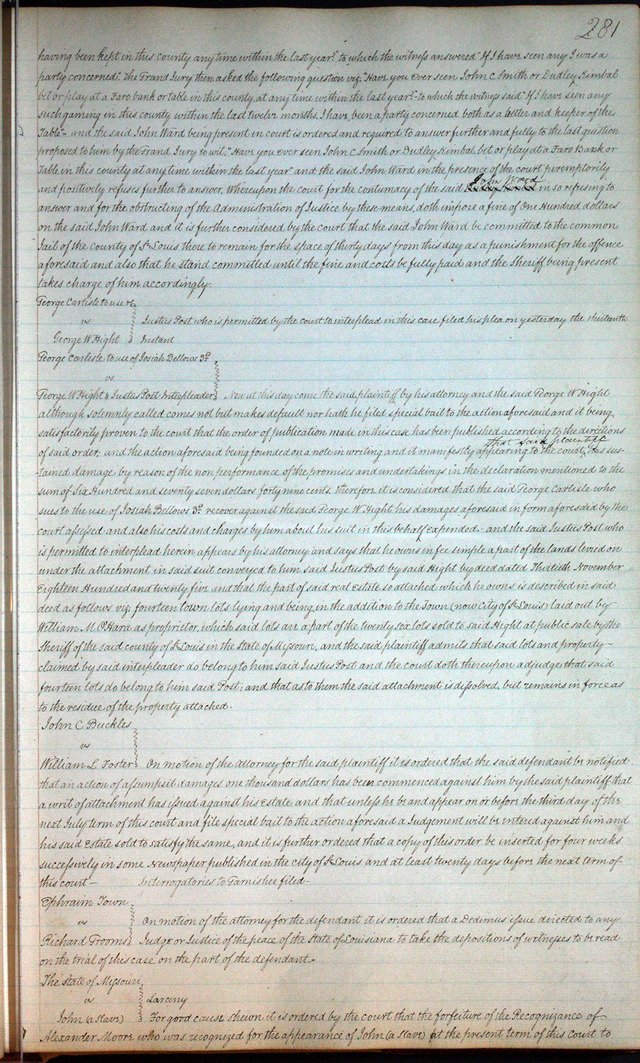 281
having been kept in this county any time within the last year? to which the witness answered "If I have seen any I was a
party concerned". The Grand Jury then asked the following question viz; "Have you ever seen John C Smith or Dudley Kimbal
bet or play at a Faro bank or table in this county, at any time within the last year"? to which the witness said "If I have seen any
such gaming in this county within the last twelve months, I have been a party concerned both as a better and keeper of the
Table" and the said John Ward being present in court is ordered and required to answer further and fully to the last question
proposed to him by the Grand Jury to wit; "Have you ever seen John C Smith or Dudley Kimbal bet or play at a Faro Bank or
Table in this county at any time within the last year" and the said John Ward in the presence of the court peremptorily
and positively refuses further to answer. Whereupon the court for the contumacy of the said John Ward in so refusing to
answer and for the obstructing of the Administration of Justice by these means, doth impose a fine of One Hundred dollars
on the said John Ward and it is further considered by the court that the said John Ward be committed to the common
Jail of the County of St Louis there to remain for the space of thirty days from this day as a punishment for the offence
aforesaid and also that he stand committed until the fine and costs be fully paid and the Sheriff being present
takes charge of him accordingly.
George Carlisle to use &c
vs Justus Post who is permitted by the court to interplead in this case filed his plea on yesterday the thirteenth
George W Hight Instant
George Carlisle to use of Josiah Bellows 3d.
vs
George W Hight & Justus Post Interpleader Now at this day come the said plaintiff by his attorney and the said George W Hight
although solemnly called comes not but makes default nor hath he filed special bail to the action aforesaid and it being
satisfactorily proven to the court that the order of publication made in this case has been published according to the directions
of said order, and the action aforesaid being founded on a note in writing and it manifestly appearing to the court, that said plaintiff has sus-
tained damage by reason of the non performance of the promises and undertakings in the declaration mentioned to the
sum of Six Hundred and seventy seven dollars forty nine cents. therefore it is considered that the said George Carlisle who
sues to the use of Josiah Bellows 3d. recover against the said George W. Hight his damages aforesaid in form aforesaid by the
court assessed and also his costs and charges by him about his suit in this behalf expended. and the said Justus Post who
is permitted to interplead herein appears by his attorney and says that he owns in fee simple a part of the lands levied on
under the attachment in said suit conveyed to him said Justus Post by said Hight by deed dated Thirtieth November
Eighteen Hundred and twenty five and that the part of said real Estate so attached which he owns is described in said
deed as follows viz, fourteen town lots lying and being in the addition to the Town (now City of St Louis) laid out by
William M. O'Hara as proprietor, which said lots are a part of the twenty six lots sold to said Hight at public sale by the
Sheriff of the said county of St Louis in the State of Missouri, and the said plaintiff admits that said lots and property
claimed by said interpleader do belong to him said Justus Post and the court doth thereupon adjudge that said
fourteen lots do belong to him said Post; and that as to them the said attachment is dissolved, but remains in force as
to the residue of the property attached.
John C Buckles
vs
William L Foster On motion of the Attorney for the said plaintiff it is ordered that the said defendant be notified
that an action of assumpsit damages one thousand dollars has been commenced against him by the said plaintiff that
a writ of attachment has issued against his Estate and that unless he be and appear on or before the third day of the
next July term of this court and file special bail to the action aforesaid a Judgement will be entered against him and
his said Estate sold to satisfy the same, and it is further ordered that a copy of this order be inserted for four weeks
successively in some Newspaper published in the City of St Louis and at least twenty days before the next term of
this court— Interrogatories to Garnishee filed—
Ephraim Town
vs On motion of the attorney for the defendant it is ordered that a Dedimus issue directed to any
Richard Grooms Judge or Justice of the peace of the State of Louisiana to take the depositions of witnesses to be read
on the trial of this case on the part of the defendant.—
The State of Missouri
vs Larceny
John (a Slave) For good cause shewn it is ordered by the court that the forfeiture of the Recognizance of
Alexander Moore who was recognized for the appearance of John (a Slave) at the present term of this Court to